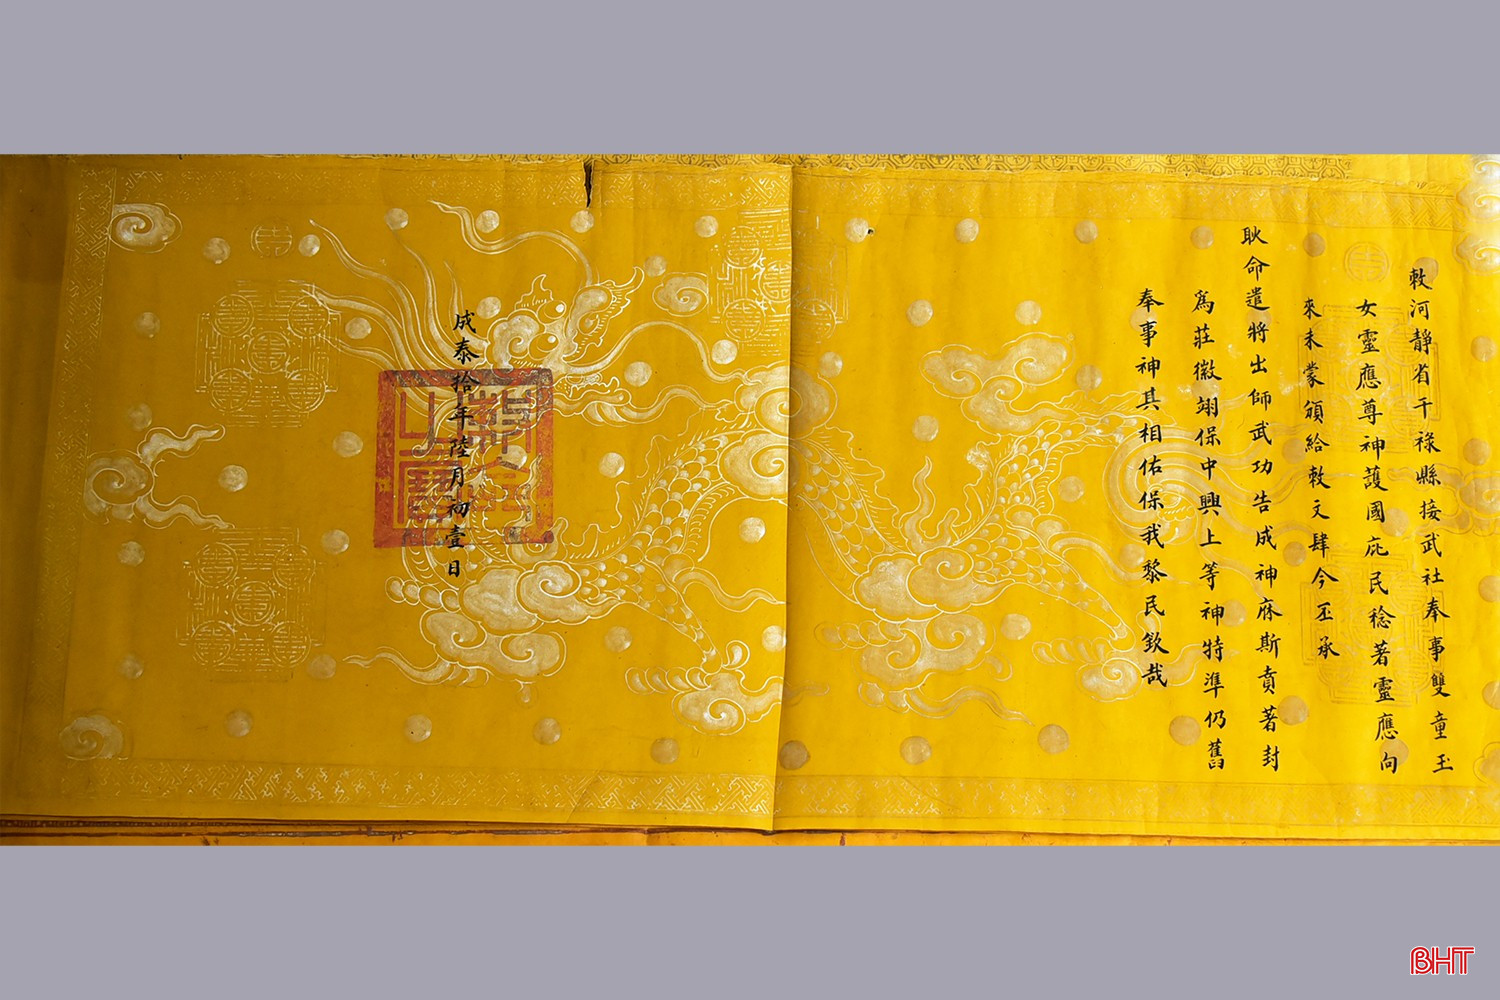 敕河靜省干祿縣接武社奉事雙童玉
女靈應尊神護國庇民稔著靈應向
來未蒙頒給敕文肆今丕承
耿命遣將出師武功告成神庥斯賁著封
爲莊徽翊保中興上等神特準仍舊
奉事神其相佑保我黎民欽哉
成泰拾年陸月初壹日
BHT